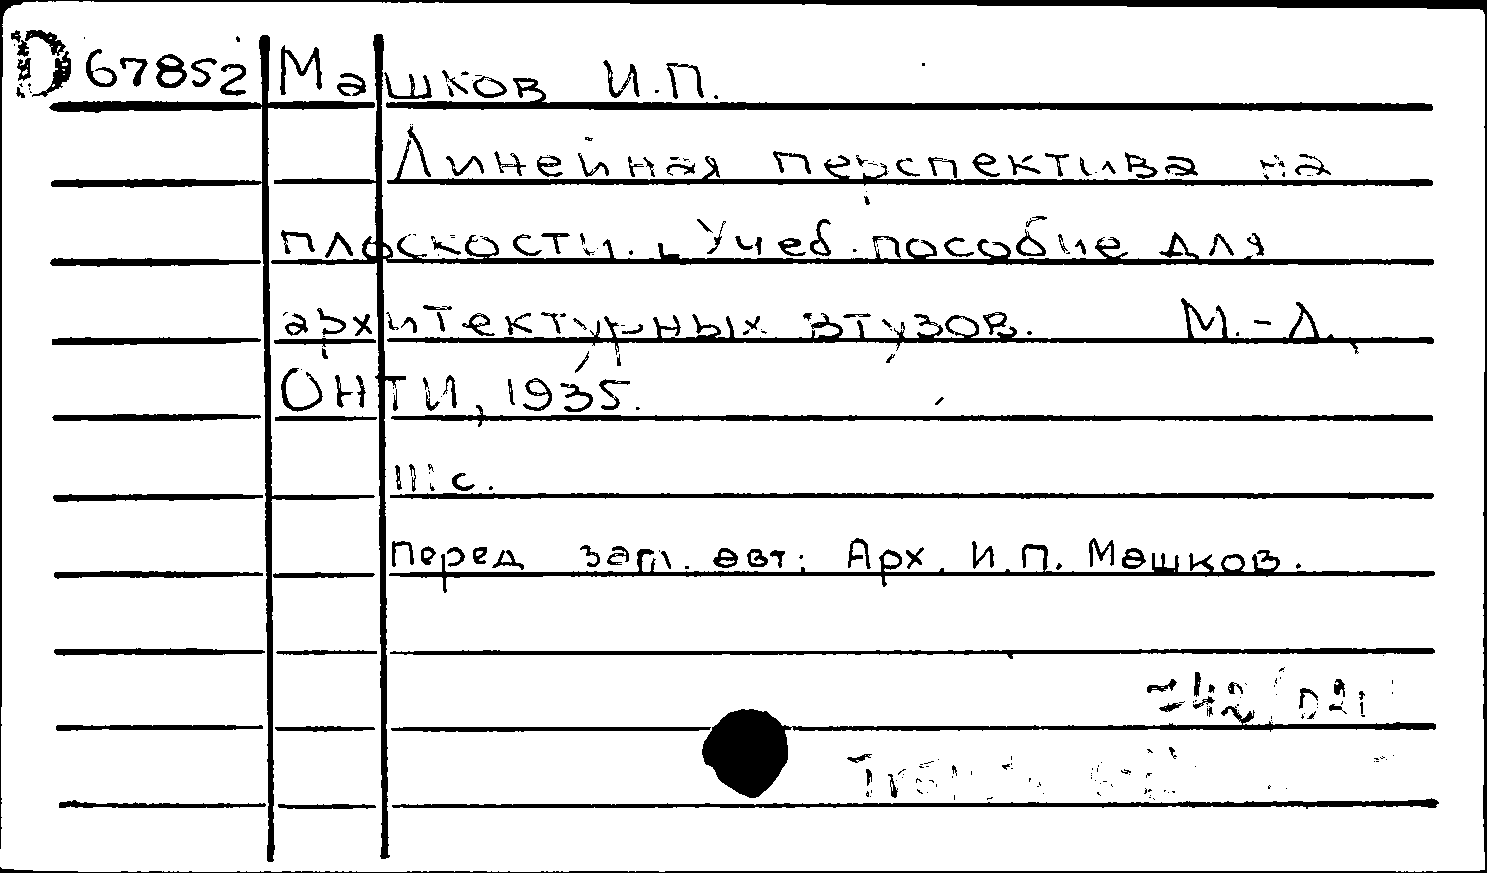 D 67852 Машков И.П.
Линейная перспектива на
плоскости. Учеб. пособие для
архитектурных втузов. М.-Л.,
ОНТИ, 1935.
111 с.
Перед загл. авт: Арх. И.П. Машков.
742